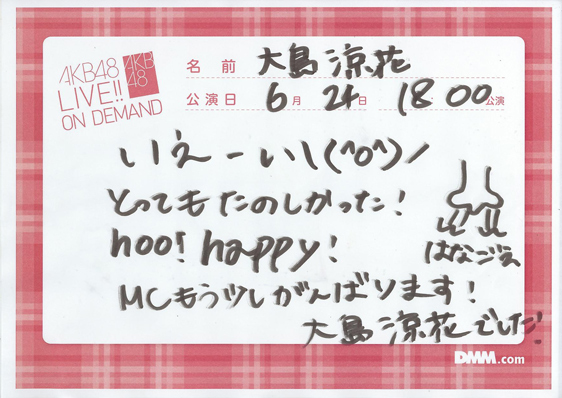 AKB48
LIVE!!
ON DEMAND
AKB
48
名前 大島涼花
公演日 6月 24日 18 00 公演
いえーい\(^o^)/
とってもたのしかった!
hoo! happy!
はなごえ
MCもう少しがんばります!
大島涼花でした!
DMM.com